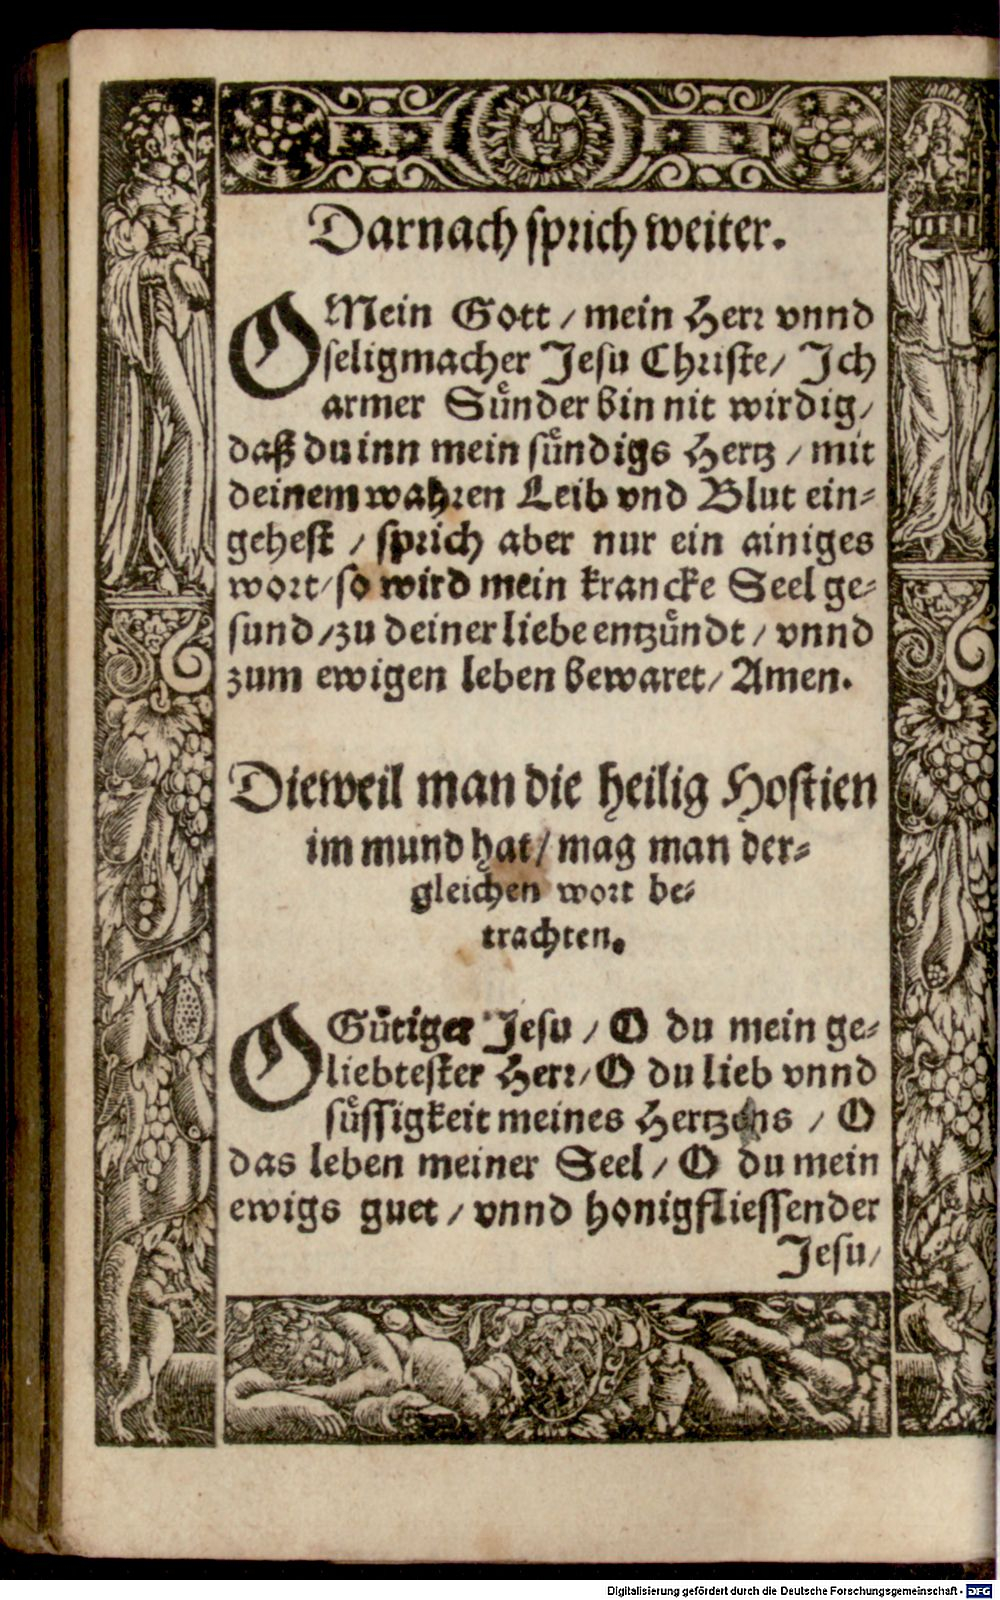 Darnach sprich weiter.
O Mein Gott / mein Herr vnnd
seligmacher Jesu Christe / Ich
armer Sünder bin nit wirdig /
daß du inn mein sündigs Hertz / mit
deinem wahren Leib vnd Blut ein-
gehest / sprich aber nur ein ainiges
wort / so wird mein krancke Seel ge-
sund / zu deiner liebe entzündt / vnnd
zum ewigen leben bewaret / Amen.
Dieweil man die heilig Hostien
im mund hat / mag man der-
gleichen wort be-
trachten.
O Gütiger Jesu / O du mein ge-
liebtester Herr / O du lieb vnnd
süssigkeit meines Hertzens / O
das leben meiner Seel / O du mein
ewigs guet / vnnd honigfliessender
Jesu /
Digitalisierung gefördert durch die Deutsche Forschungsgemeinschaft - DFG